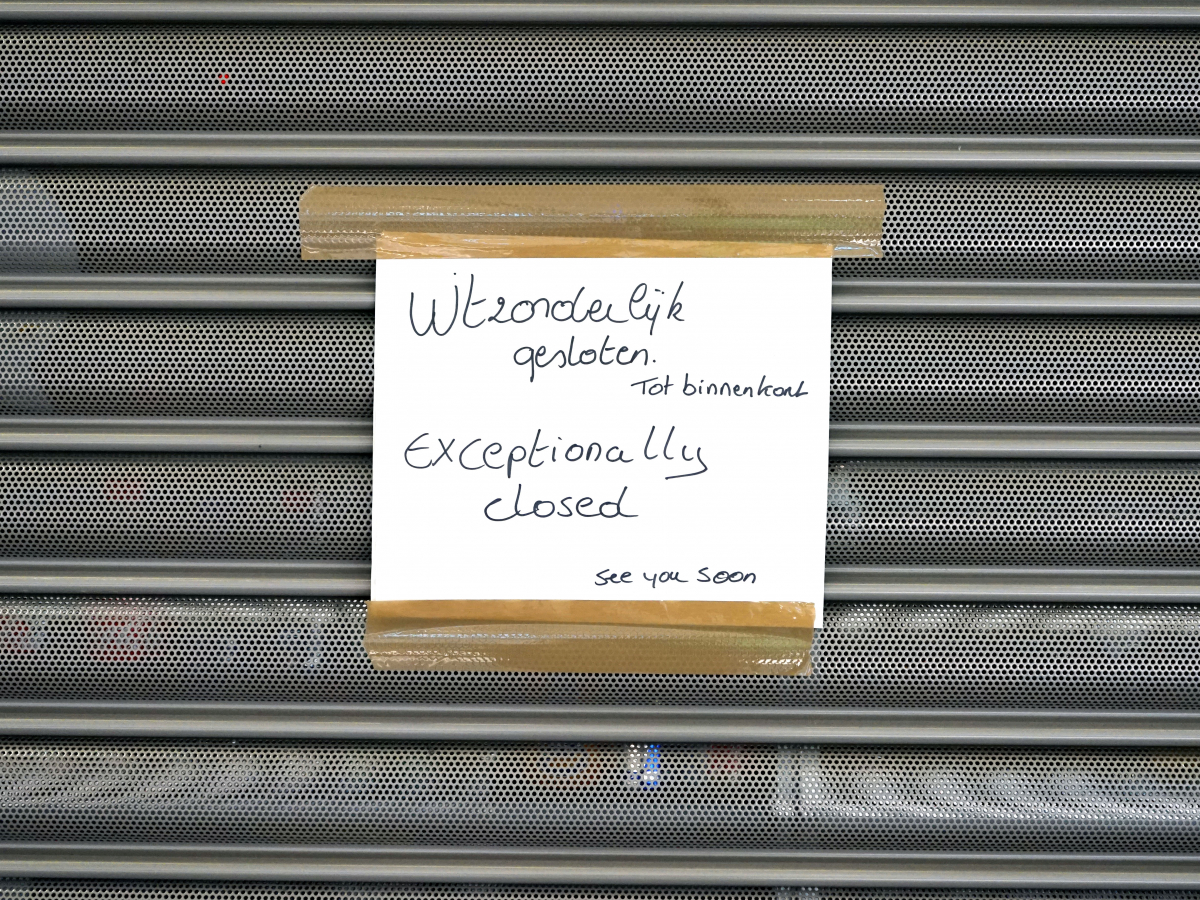 Uitzonderlijk
gesloten.
Tot binnenkort
Exceptionally
closed
see you soon